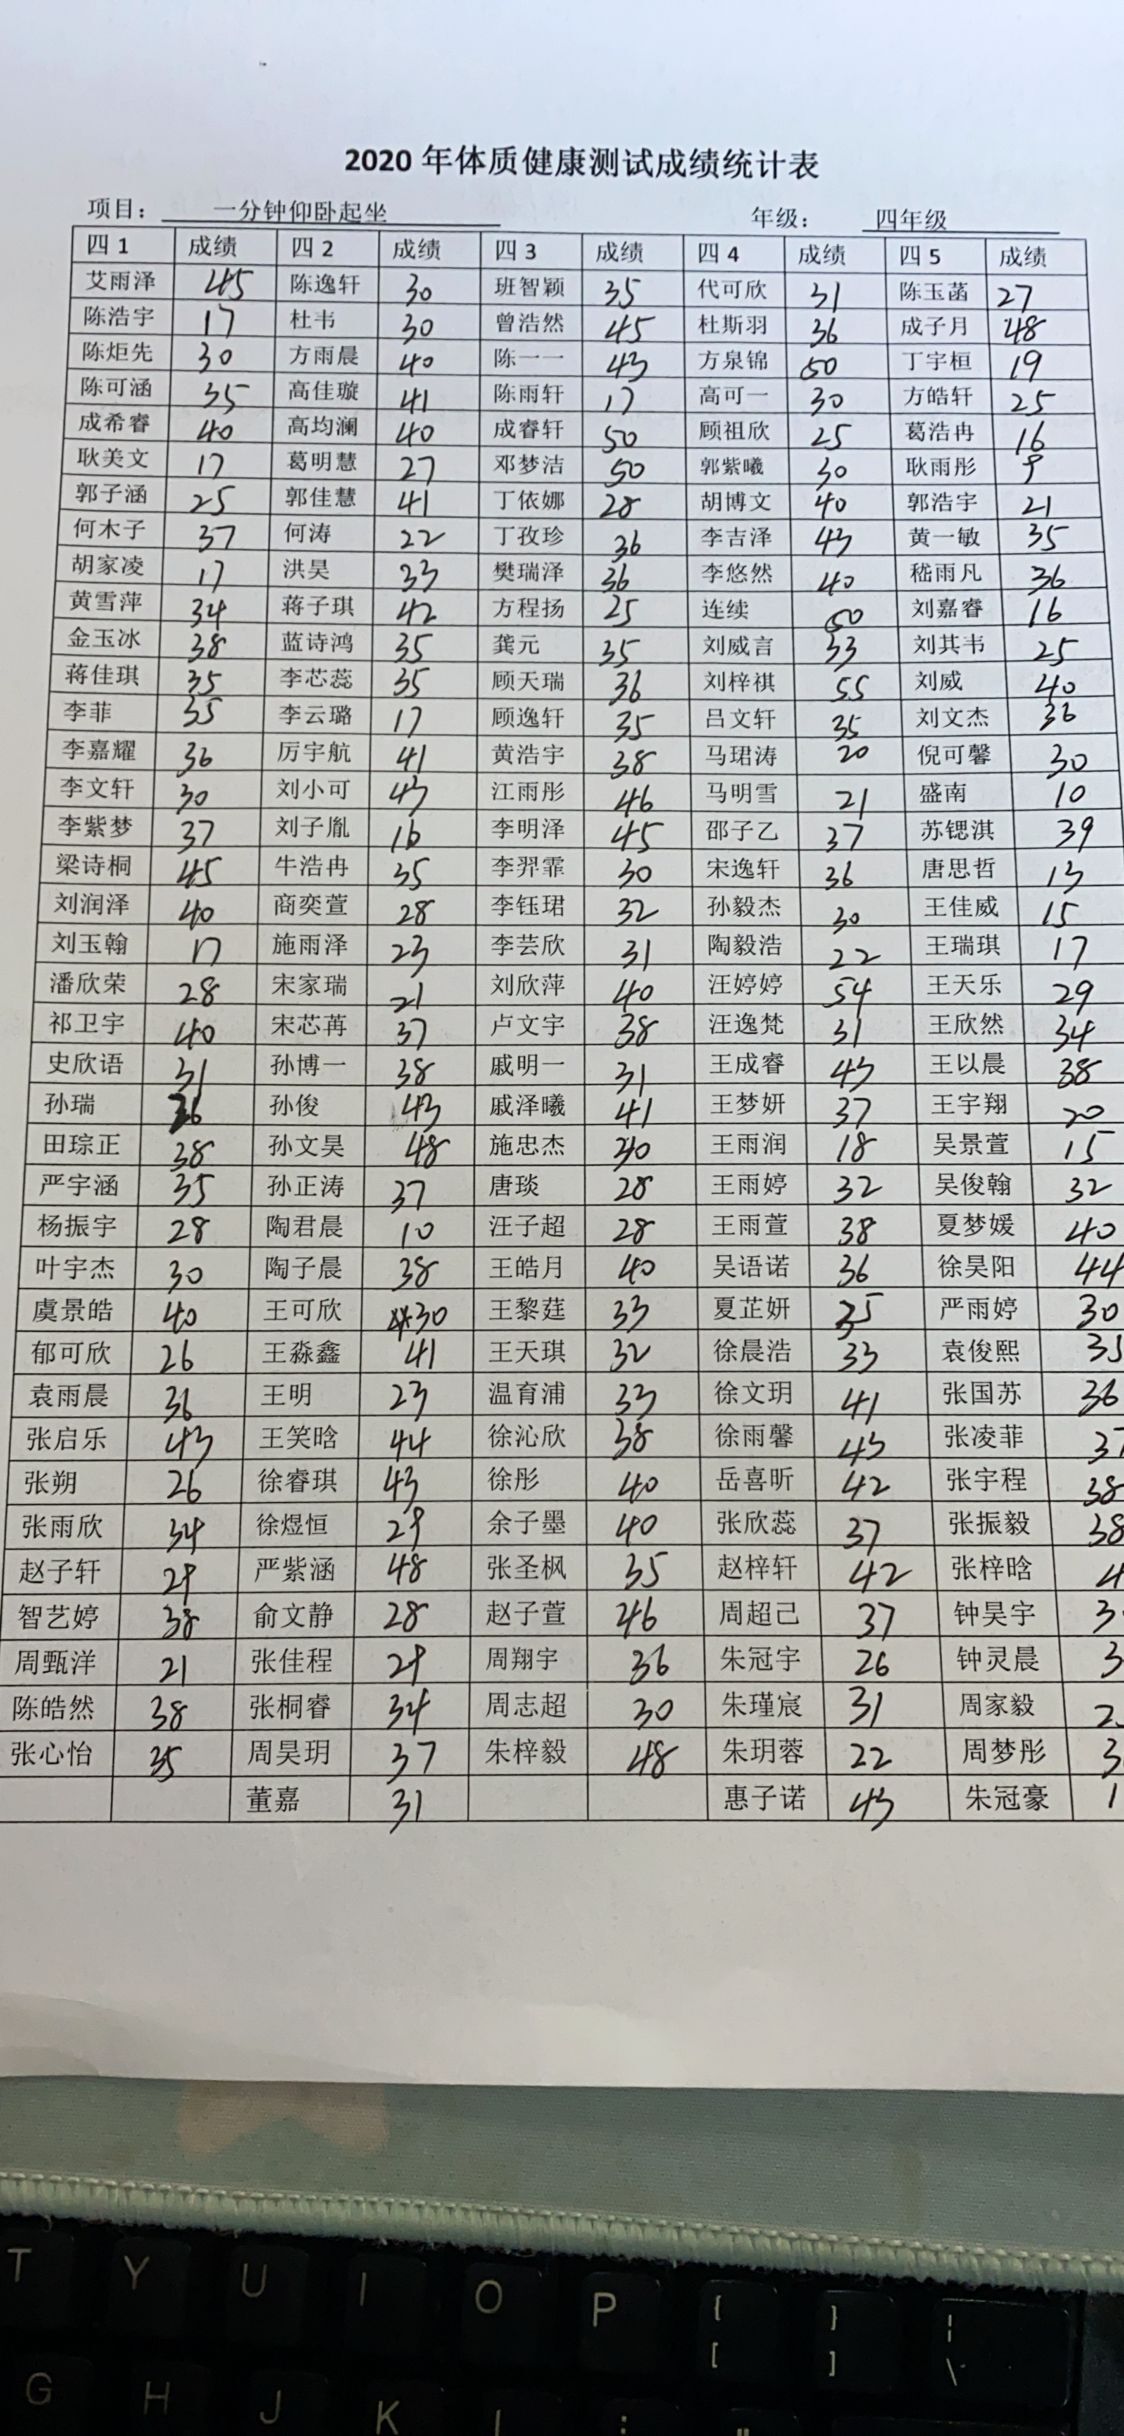 2020 年体质健康测试成绩统计表
项目： 一分钟仰卧起坐 年级： 四年级
四 1 成绩 四 2 成绩 四 3 成绩 四 4 成绩 四 5 成绩
艾雨泽 45 陈逸轩 30 班智颖 35 代可欣 31 陈玉菡 27
陈浩宇 17 杜韦 30 曾浩然 45 杜斯羽 36 成子月 48
陈炬先 30 方雨晨 40 陈一一 43 方泉锦 50 丁宇桓 19
陈可涵 35 高佳璇 41 陈雨轩 17 高可一 30 方皓轩 25
成希睿 40 高均澜 40 成睿轩 50 顾祖欣 25 葛浩冉 16
耿美文 17 葛明慧 27 邓梦洁 50 郭紫曦 30 耿雨彤 9
郭子涵 25 郭佳慧 41 丁依娜 28 胡博文 40 郭浩宇 21
何木子 37 何涛 22 丁孜珍 36 李吉泽 43 黄一敏 35
胡家凌 17 洪昊 33 樊瑞泽 36 李悠然 40 嵇雨凡 36
黄雪萍 34 蒋子琪 42 方程扬 25 连续 50 刘嘉睿 16
金玉冰 38 蓝诗鸿 35 龚元 35 刘威言 33 刘其韦 25
蒋佳琪 35 李芯蕊 35 顾天瑞 36 刘梓祺 55 刘威 40
李菲 35 李云璐 17 顾逸轩 35 吕文轩 35 刘文杰 36
李嘉耀 36 厉宇航 41 黄浩宇 38 马珺涛 20 倪可馨 30
李文轩 30 刘小可 43 江雨彤 46 马明雪 21 盛南 10
李紫梦 37 刘子胤 16 李明泽 45 邵子乙 37 苏锶淇 39
梁诗桐 45 牛浩冉 35 李羿霏 30 宋逸轩 36 唐思哲 13
刘润泽 40 商奕萱 28 李钰珺 32 孙毅杰 30 王佳威 15
刘玉翰 17 施雨泽 23 李芸欣 31 陶毅浩 22 王瑞琪 17
潘欣荣 28 宋家瑞 21 刘欣萍 40 汪婷婷 54 王天乐 29
祁卫宇 40 宋芯苒 37 卢文宇 38 汪逸梵 31 王欣然 34
史欣语 31 孙博一 38 戚明一 31 王成睿 43 王以晨 38
孙瑞 孙俊 43 戚泽曦 41 王梦妍 37 王宇翔 20
田琮正 38 孙文昊 48 施忠杰 王雨润 18 吴景萱 15
严宇涵 35 孙正涛 37 唐琰 28 王雨婷 32 吴俊翰 32
杨振宇 28 陶君晨 10 汪子超 28 王雨萱 38 夏梦媛 40
叶宇杰 30 陶子晨 38 王皓月 40 吴语诺 36 徐昊阳 44
虞景皓 40 王可欣 30 王黎莛 33 夏芷妍 35 严雨婷 30
郁可欣 26 王淼鑫 41 王天琪 32 徐晨浩 33 袁俊熙 35
袁雨晨 36 王明 23 温育浦 33 徐文玥 41 张国苏 36
张启乐 43 王笑晗 44 徐沁欣 38 徐雨馨 43 张凌菲 37
张朔 26 徐睿琪 43 徐彤 40 岳喜昕 42 张宇程 38
张雨欣 34 徐煜恒 29 余子墨 40 张欣蕊 37 张振毅 38
赵子轩 29 严紫涵 48 张圣枫 35 赵梓轩 42 张梓晗 4
智艺婷 38 俞文静 28 赵子萱 46 周超己 37 钟昊宇 3
周甄洋 21 张佳程 29 周翔宇 36 朱冠宇 26 钟灵晨 3
陈皓然 38 张桐睿 34 周志超 30 朱瑾宸 31 周家毅 2
张心怡 35 周昊玥 37 朱梓毅 48 朱玥蓉 22 周梦彤 3
董嘉 31 惠子诺 43 朱冠豪 1
T Y U I O P { [ } ] | \
G H J K